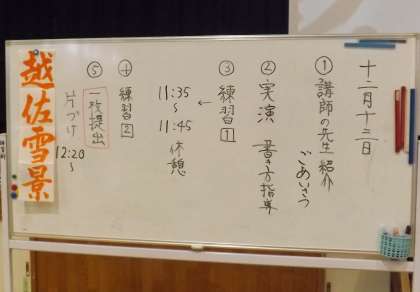 十二月十二日
① 講師の先生 紹介
ごあいさつ
② 実演 書き方指導
③ 練習 1
← 11:35
～
11:45 休憩
④ 練習 2
⑤ 一枚提出
片づけ 12:20～
越佐雪景